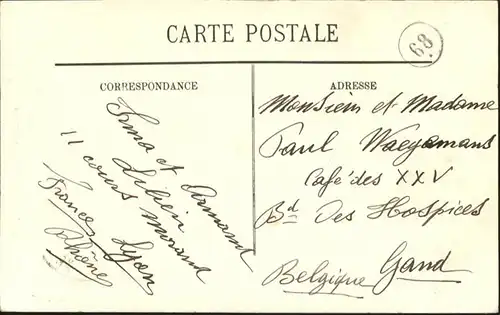 CARTE POSTALE
68
CORRESPONDANCE
Irma et Armand
Libien
11 cours Morand
Lyon
France
Rhône
ADRESSE
Monsieur et Madame
Paul Waegemans
Café des XXV
Bd Des Hospices
Gand
Belgique